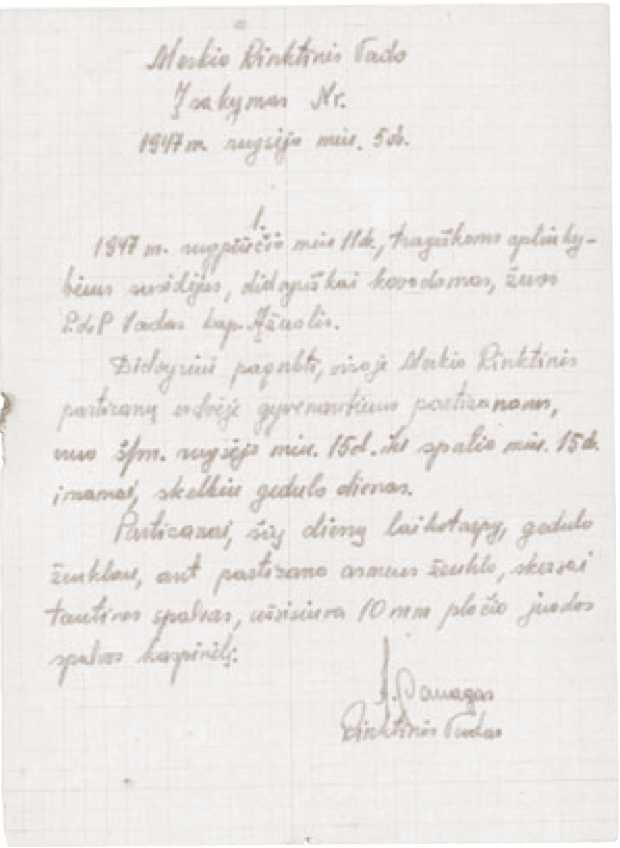 Merkio Rinktinės Vado
Įsakymas Nr.
1947 m. rugsėjo mėn. 5 d.
1.
1947 m. rugpiūčio mėn 11 d., tragiškoms aplinky-
bėms susidėjus, didvyriškai kovodamas, žuvo
vadas kap. Ąžuolis.
Didvyriui pagerbti, visoje Merkio Rinktinės
partizanų erdvėje gyvenantiems partizanams,
nuo š/m. rugsėjo mėn. 15 d. iki spalio mėn. 15 d.
imamai, skelbiu gedulo dienas.
Partizanai, šių dienų laikotarpy, gedulo
ženklan, ant partizano asmens ženklo, skersai
tautines spalvas, užsisiuva 10 mm pločio juodos
spalvos kaspinėlį.
Rinktinės Vadas